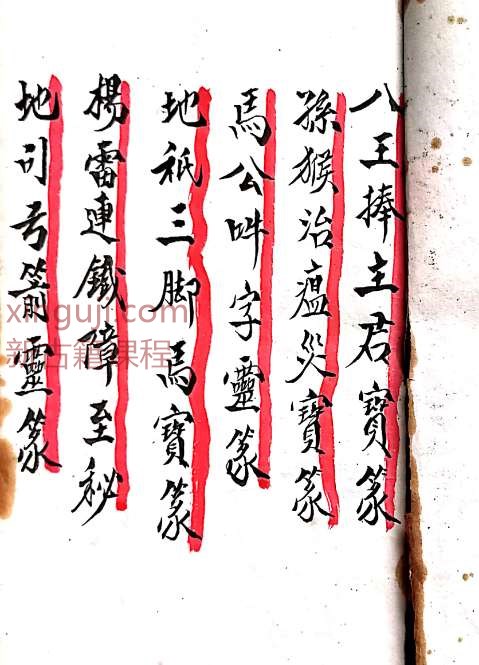 八王捧主君寳篆
孫猴治瘟災寳篆
馬公吽字靈篆
地祇三脚馬寳篆
楊雷連鉄障至秘
地司号箭靈篆
xinguji.com
新古籍课程